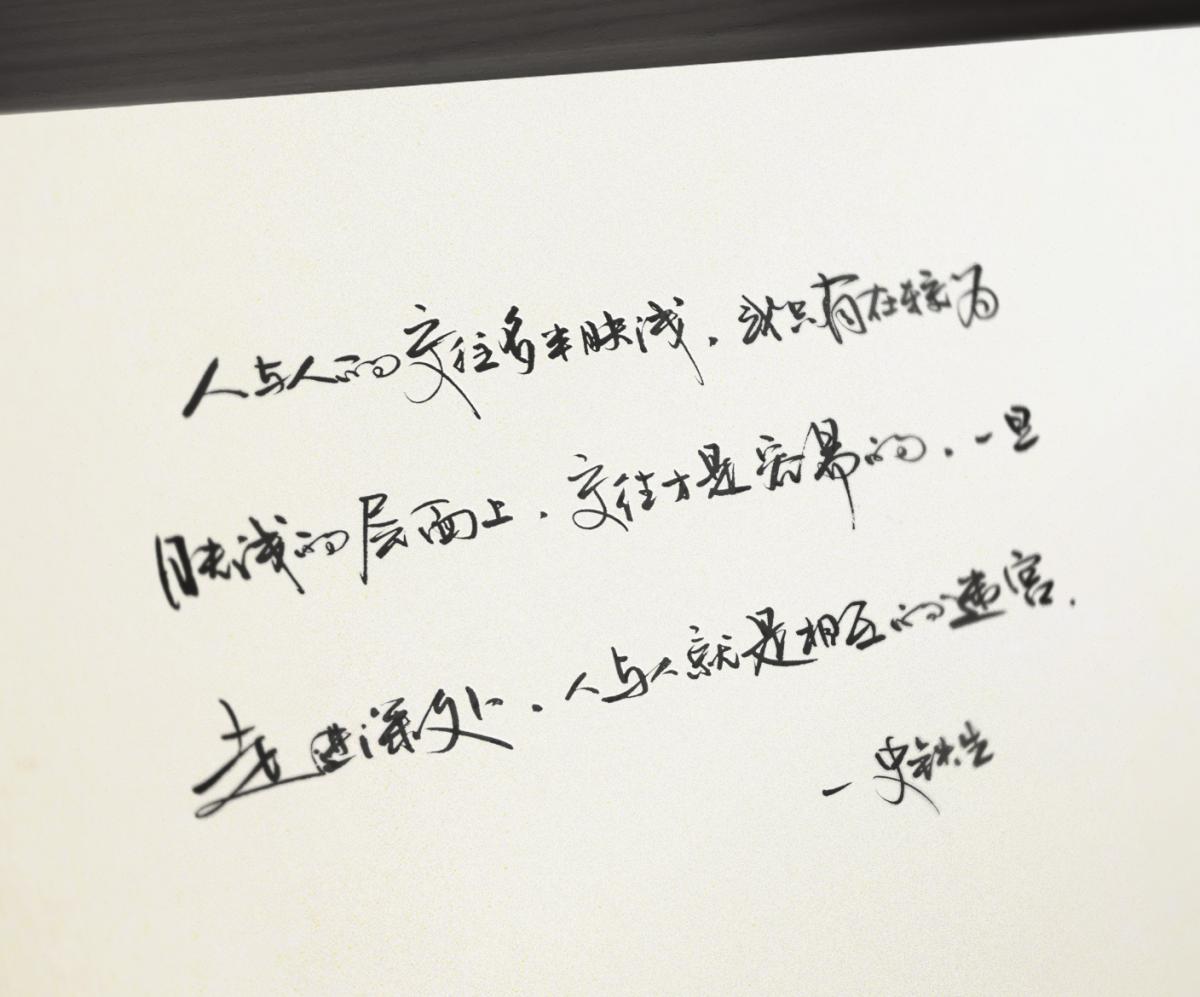 人与人的交往多半肤浅，或只有在较为
肤浅的层面上，交往才是容易的，一旦
走进深处，人与人就是相互的迷宫.
一史铁生